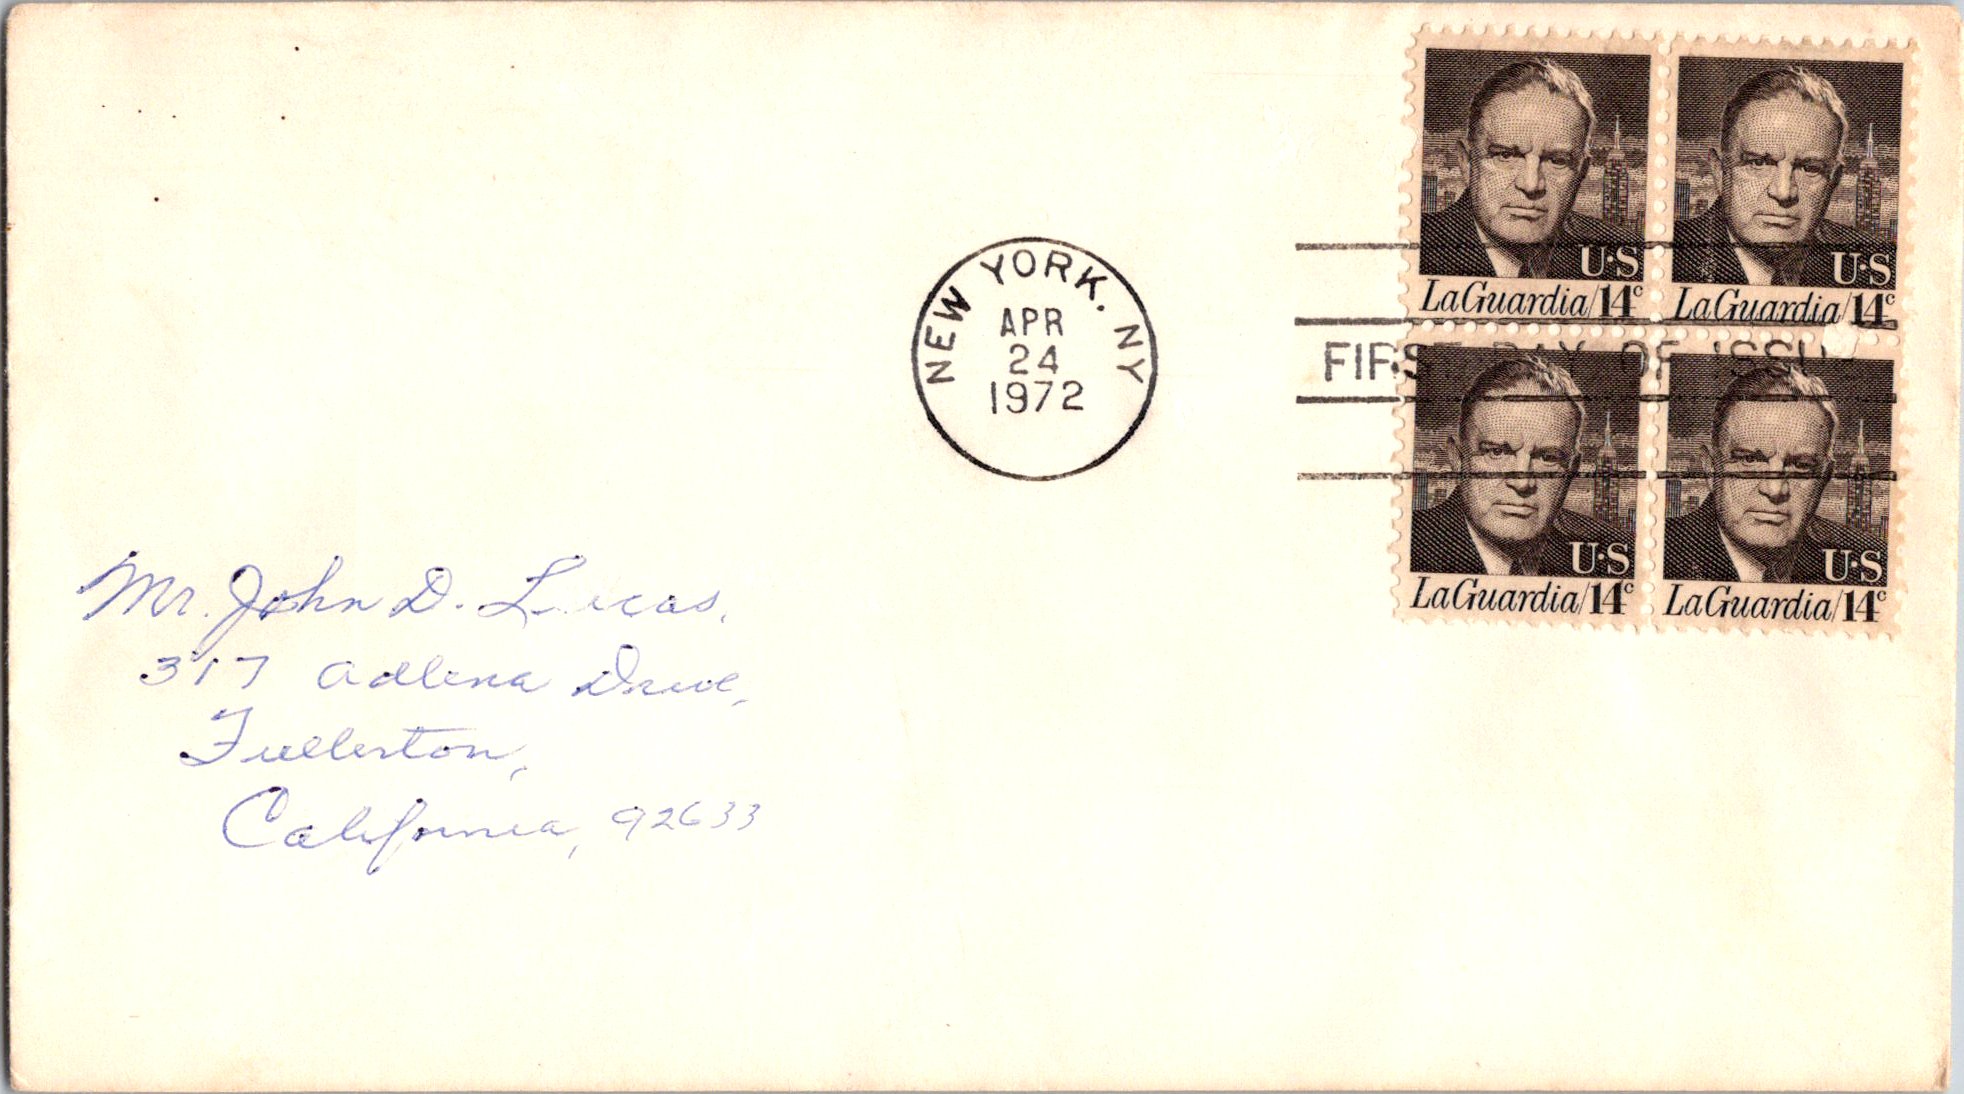 NEW YORK. NY
APR
24
1972
FIRST DAY OF ISSU
U·S
LaGuardia/14c
U·S
LaGuardia/14c
U·S
LaGuardia/14c
U·S
LaGuardia/14c
Mr. John D. Lucas,
317 Adlena Drive,
Fullerton,
California, 92633